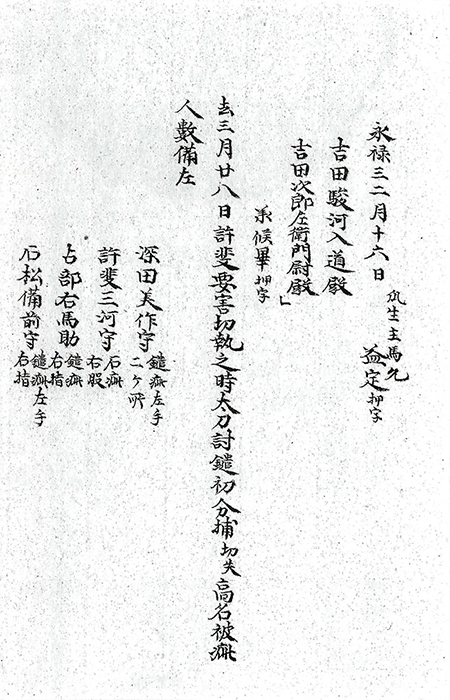 永禄三二月十六日
瓜生主馬允
益定押字
吉田駿河入道殿
吉田次郎左衛門尉殿」
承候畢押字
去三月廿八日許斐要害切執之時太刀討鑓初分捕切失高名被疵
人數備左
深田美作守
鑓疵左手
二ヶ所
許斐三河守
石疵
右股
占部右馬助
鑓疵
右指
石松備前守
鑓疵左手
右指